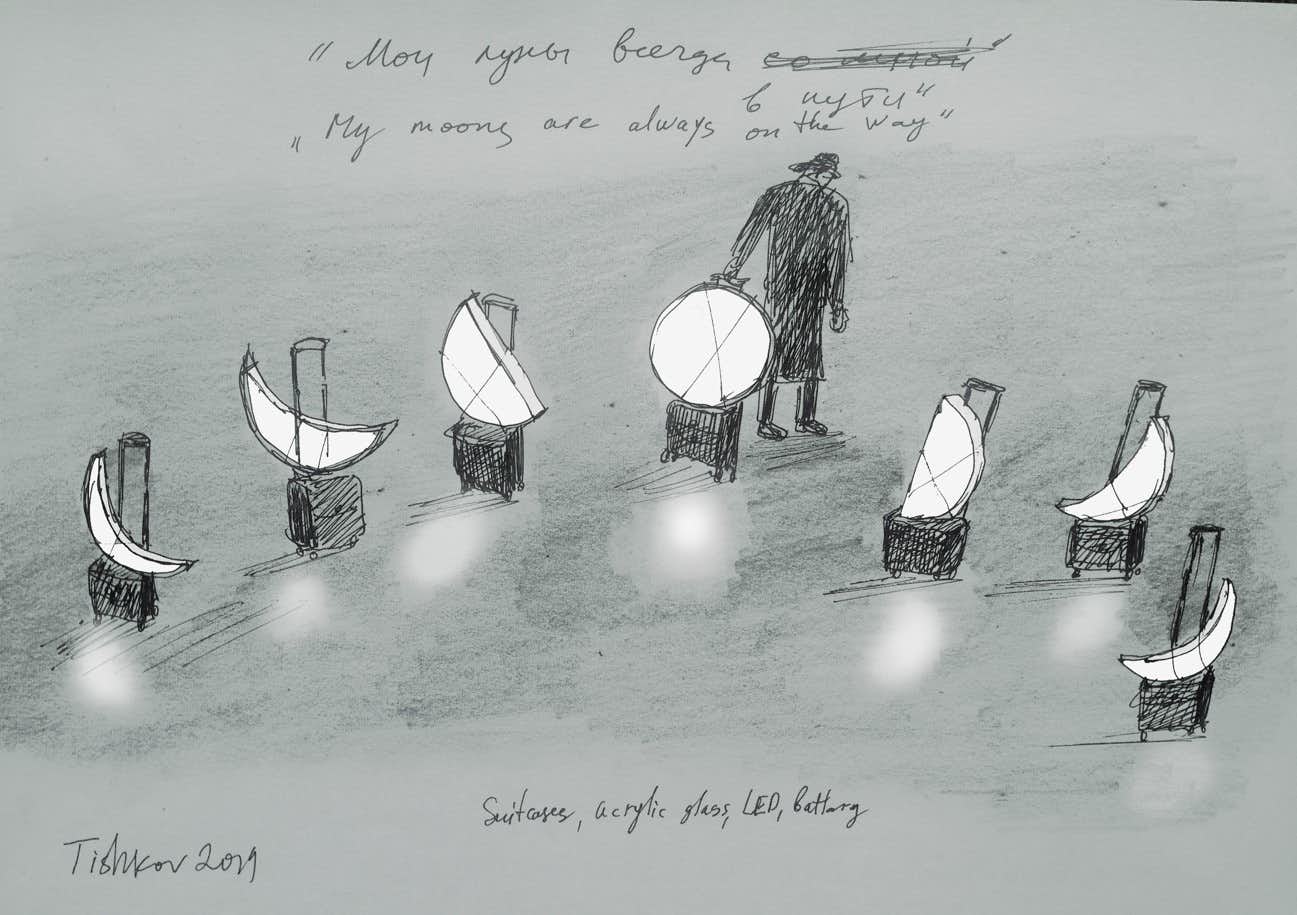 "Мои луны всегда со мной"
в пути"
"My moons are always on the way"
Suitcases, acrylic glass, LED, battary
Tishkov 2019